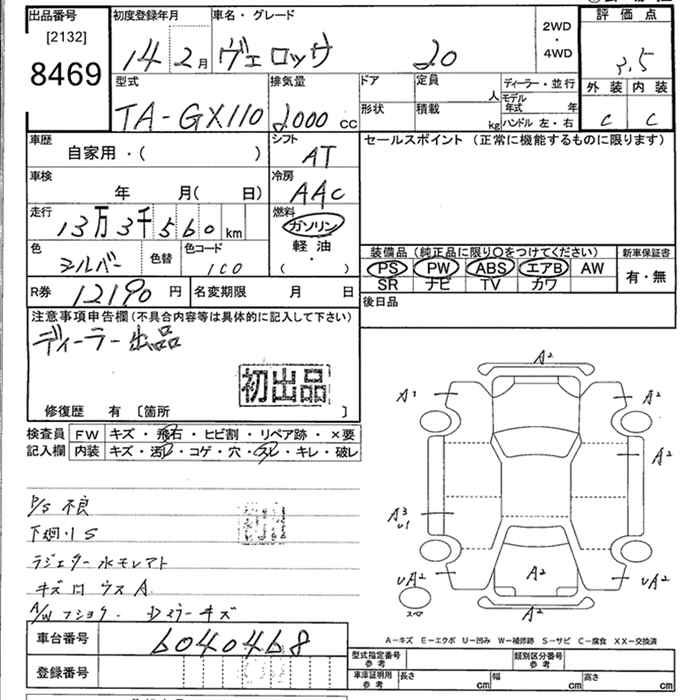 出品番号
[2132]
8469
初度登録年月
14 2月
車名・グレード
ヴェロッサ 20
2WD
・
4WD
評価点
3.5
外装 内装
C C
型式
TA-GX110
排気量
2000 CC
ドア
形状
定員
人
積載
kg
ディーラー・並行
モデル年式 年
ハンドル 左・右
車歴
自家用・( )
シフト
AT
セールスポイント (正常に機能するものに限ります)
車検
年 月( 日)
冷房
AAC
走行
13万3千560km
燃料
ガソリン
軽油
( ・ )
色
シルバー
色替
色コード
1C0
装備品 (純正品に限り○をつけてください)
PS PW ABS エアB AW
SR ナビ TV カワ
新車保証書
有・無
R券 12190円
名変期限 月 日
後日品
注意事項申告欄(不具合内容等は具体的に記入して下さい)
ディーラー出品
初出品
修復歴 有 [箇所 ]
検査員記入欄
FW キズ・飛石・ヒビ割・リペア跡・×要
内装 キズ・汚レ・コゲ・穴・スレ・キレ・破レ
P/S 不良
下廻りS
ラジエター水モレアト
キズ凹 ウスA
A/W フショク.
キズ
A²
A¹
A²
A²
A³
U1
A²
UA²
UA²
スペア
A²
A-キズ E-エクボ U-凹み W-補修跡 S-サビ C-腐食 XX-交換済
車台番号 6040468
登録番号
型式指定番号 参考
類別区分番号 参考
車庫証明用 参考
長さ cm 幅 cm 高さ cm